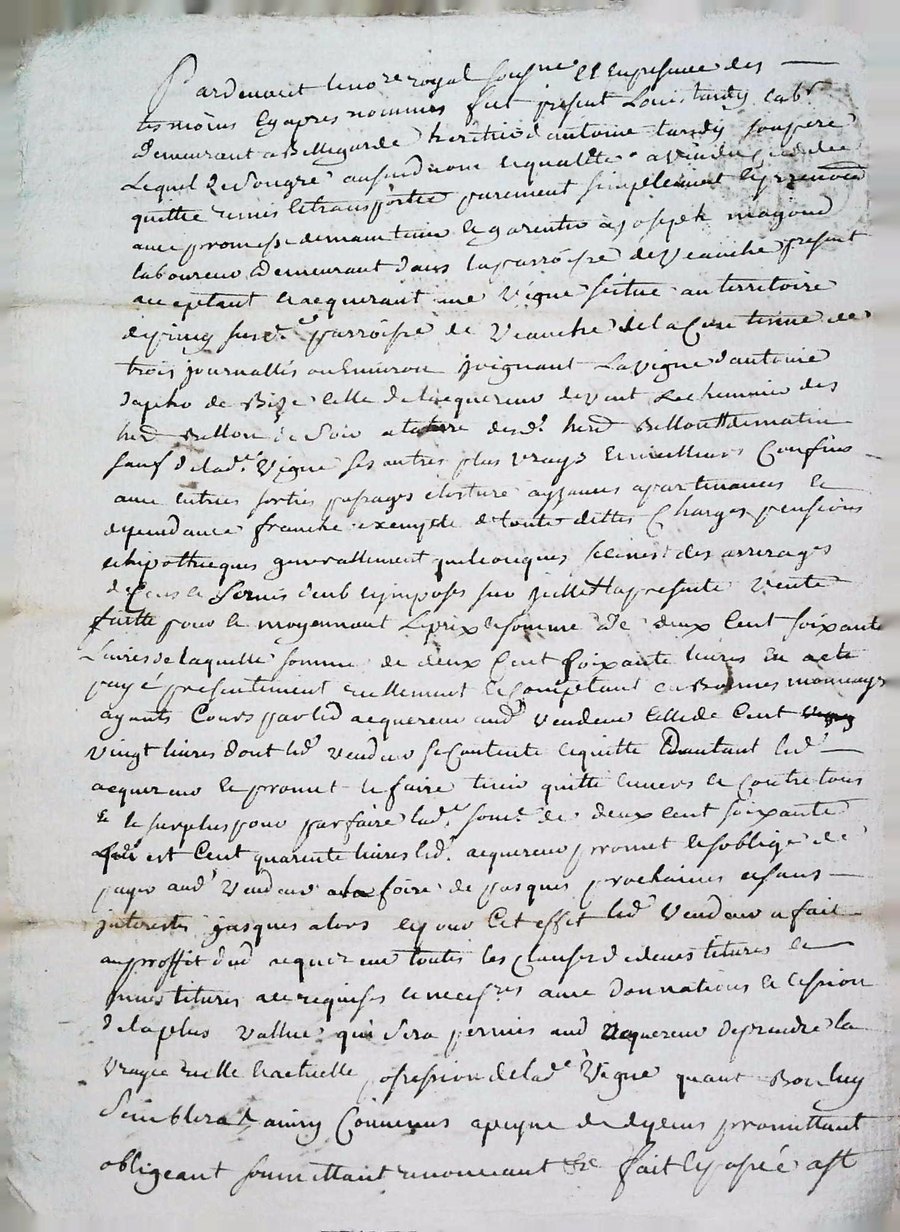 Pardevant le no.re royal sousigne et en presence des
tesmoins cy apres nommes fut present Louis tardy lab.r
demeurant a Bellegarde heritier d'antoine tardy son pere
Lequel de son gre ausurdnom et qualite a vendu cedde
quitte remis et transporte purement simplement
avec promesse de maintenir et garentir a joseph magand
laboureur demeurant dans la parroisse de Veauche present
acceptant et acquerant une Vigne scitue au territoire
parroisse de Veauche de la Contenue de
trois journallés ou Environ joignant La vigne d'antoine
de Bize celle de lacquereur devent Le chemin des
her.d Bellon de Soir a la terre desd. her.d Bellon de matin
sauf de lad. Vigne ses autres plus vrays et meilleurs Confins
avec entrees sorties passages closture aysances apartenances et
dependance franche exempte de toute dettes Charges pensions
et hipottheques generallement quelconques et des arrerages
Servis imposes sur jcelle la presente Vente
faitte pour et moyennant Le prix et somme de deux Cent soixante
Livres de laquelle somme de deux Cent soixante livres En a este
payé presentement reellement et comptant en Bonnes monnoys
ayants Cours par led acquereur aud.t Vendeur celle de Cent
Vingt livres dont led. Vendeur se Contente et quitte D'autant led.
acquereur et promet le faire tenir quitte Envers et Contre tous
Et le surplus pour parfaire lad. som.e de deux cent soixante
est Cent quarente livres led. acquereur promet et s'oblige de
payer aud.t Vendeur a la foire de pasques prochaines et sans
jnterests jusques alors et pour Cet effet led. Vendeur a fait
au proffit dud acquereur toutes les clauses de titures et
titures a ce requises et neces.res avec donnations et cession
de la plus Vallue qui sera permis aud acquereur de prendre la
Vraye reelle et actuelle possession de lad. Vigne quant Bon luy
Semblera ainsy Convenus a peyne de depens promettant
obligeant soumettant renonceant &c fait et passé